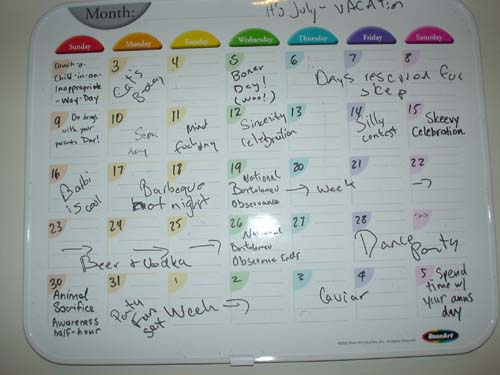 Month:
It's July - VACATION
Sunday
Monday
Tuesday
Wednesday
Thursday
Friday
Saturday
Touch-a-
Child-in-an-
Inappropriate
-Way-Day
3
Cat's
B-day
4
5
Boner
Day!
(woo!)
6
7
8
Days reserved for
sleep
9
Do drugs
with your
parents Day!
10
day
11
Mind
day
12
Sincerity
Celebration
13
14
Silly
contest
15
Skeevy
Celebration
16
is cool
17
18
Barbeque
night
19
National
Observance
20
→ week
21
22
→
23
24
25
→ → →
Beer & Vodka
26
National
Observance Ends
27
28
Dance Party
30
Animal
Sacrifice
Awareness
half-hour
31
Party
Fun Week →
1
2
3
Caviar
4
5
Spend
time w/
your
day
RoseArt